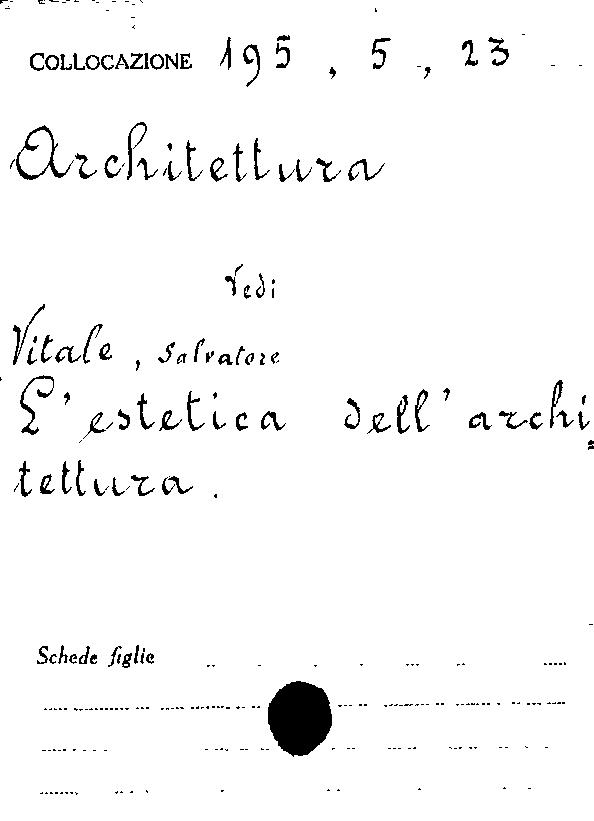 COLLOCAZIONE 195, 5, 23
Architettura
Vedi
Vitale, Salvatore
L'estetica dell'archi=
tettura.
Schede figlie